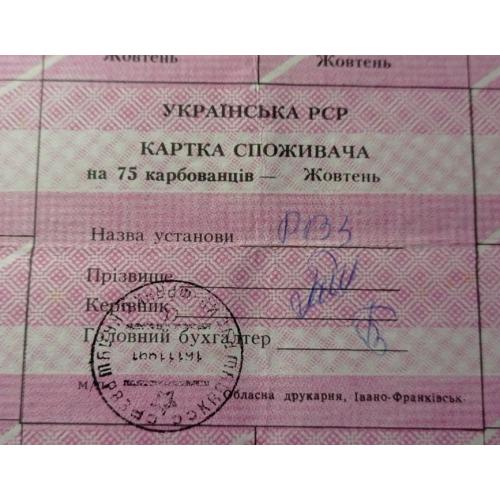 Жовтень Жовтень
УКРАЇНСЬКА РСР
КАРТКА СПОЖИВАЧА
на 75 карбованців — Жовтень
Назва установи
Прізвище
Керівник
Головний бухгалтер
Обласна друкарня, Івано-Франківськ